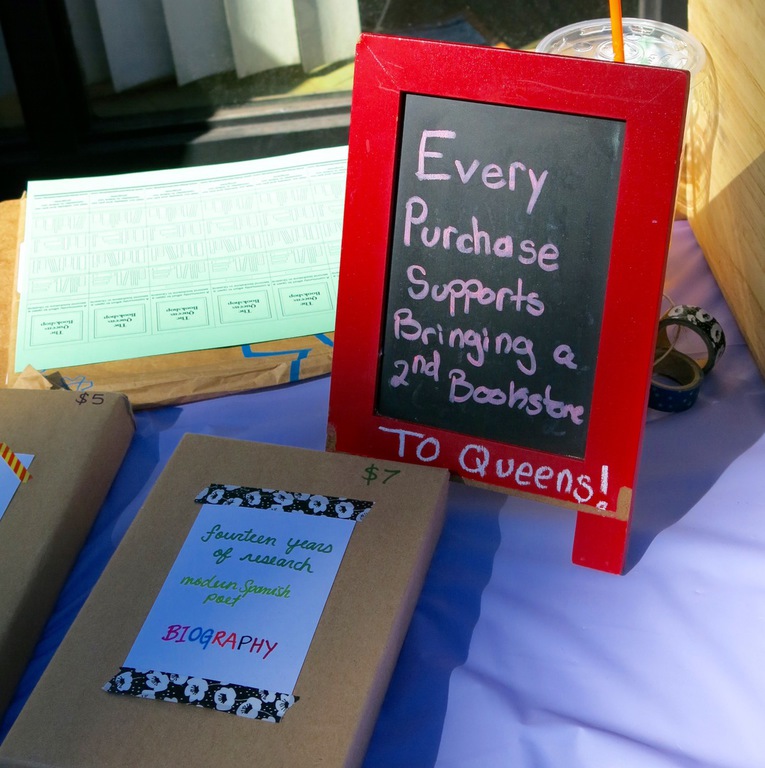 Every
Purchase
Supports
Bringing a
2nd Bookstore
TO Queens!
$5
$7
fourteen years
of research
modern Spanish
poet
BIOGRAPHY
The
Queens
Bookshop
The
Queens
Bookshop
The
Queens
Bookshop
The
Queens
Bookshop
The
Queens
Bookshop